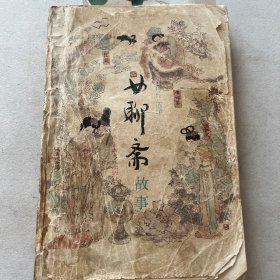 女聊斋
故事